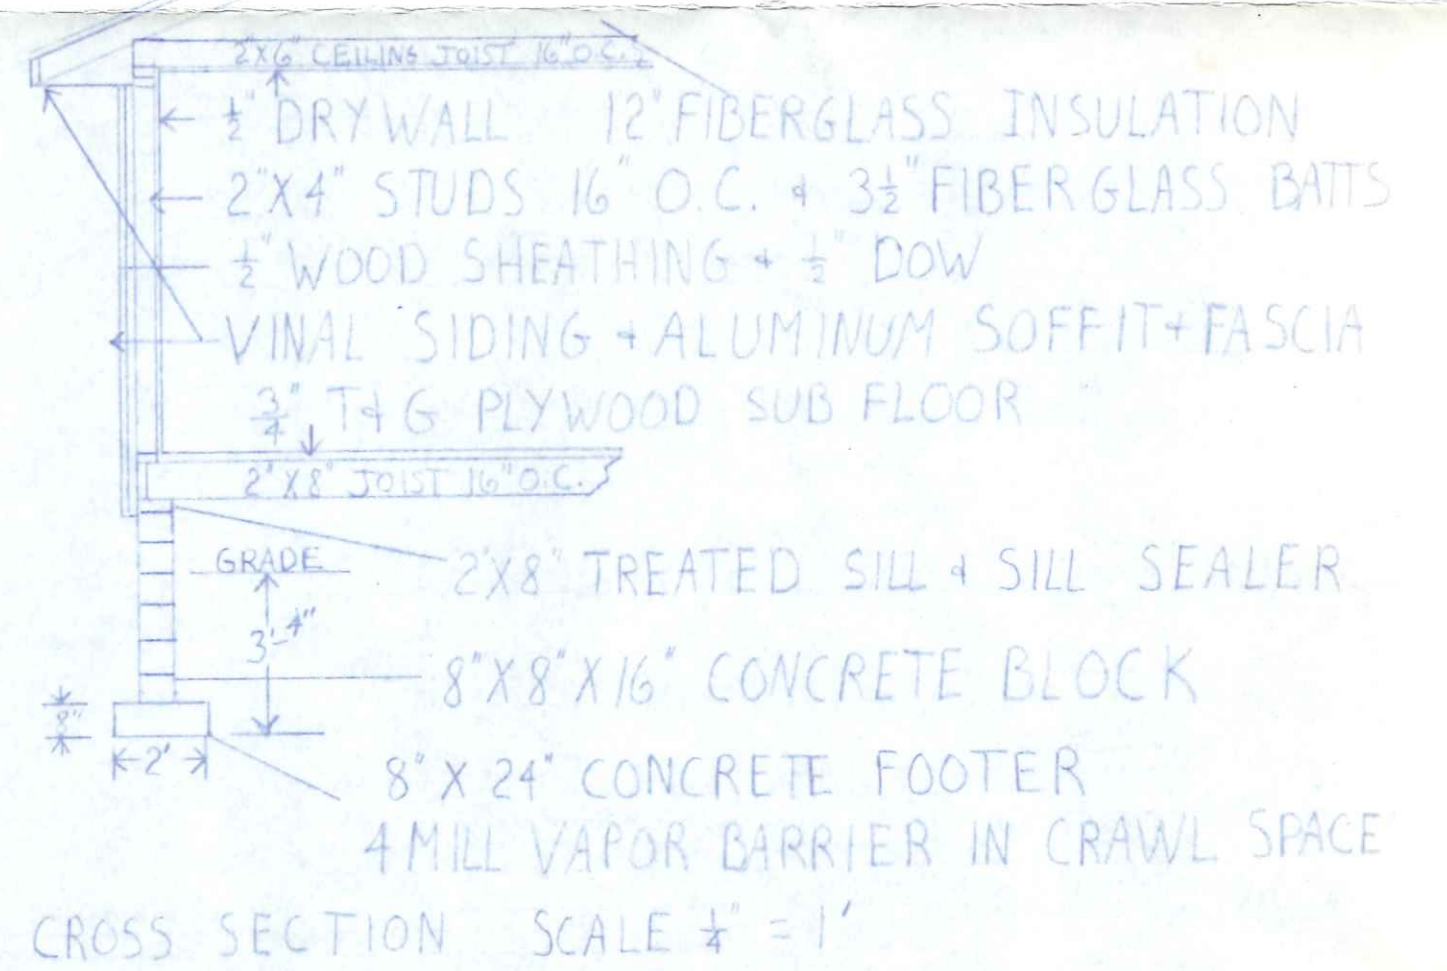 2"X6" CEILING JOIST 16" O.C.
½" DRYWALL 12" FIBERGLASS INSULATION
2"X4" STUDS 16" O.C. & 3½" FIBERGLASS BATTS
½" WOOD SHEATHING & ½" DOW
VINAL SIDING & ALUMINUM SOFFIT & FASCIA
¾" T & G PLYWOOD SUB FLOOR
2"X8" JOIST 16" O.C.
GRADE
2"X8" TREATED SILL & SILL SEALER
3'-4"
8"X8"X16" CONCRETE BLOCK
8"
2'
8" X 24" CONCRETE FOOTER
4 MILL VAPOR BARRIER IN CRAWL SPACE
CROSS SECTION SCALE ¼" = 1'